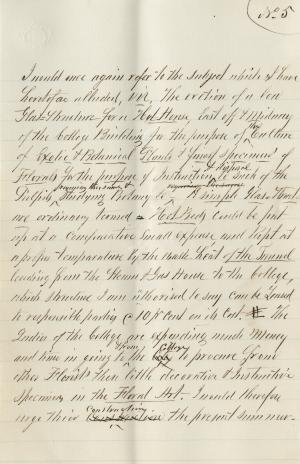 No 5
I would once again refer to the subject which I have
heretofore alluded, viz, The erection of a low
Glass Structure for a Hot House, East of & Midway
of the College Building for the purpose of the Culture
of Exotic & Botanical Plants & finest specimens of
Florals for the purpose of Instruction & to such of the
Pupils Studying Botany &c A simple Glass
are ordinary termed Hot Beds could be put
up at a comparative small expense and kept at
a proper temperature by the waste heat of the Tunnel
leading from the Steam & Gas House to the College,
which structure I am authorised to say can be leased
to responsible parties @ 10 pr Cent on its Cost, # the
Ladies of the College are expending much Money
and time in going to the City to procure from
from College
other Florists their little decorative & Instructive
Specimens in the Floral Art. I would therefore
Construction
urge their the present summer.